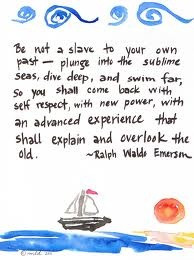 Be not a slave to your own
past — plunge into the sublime
seas, dive deep, and swim far,
so you shall come back with
self respect, with new power, with
an advanced experience that
shall explain and overlook the
old. ~Ralph Waldo Emerson